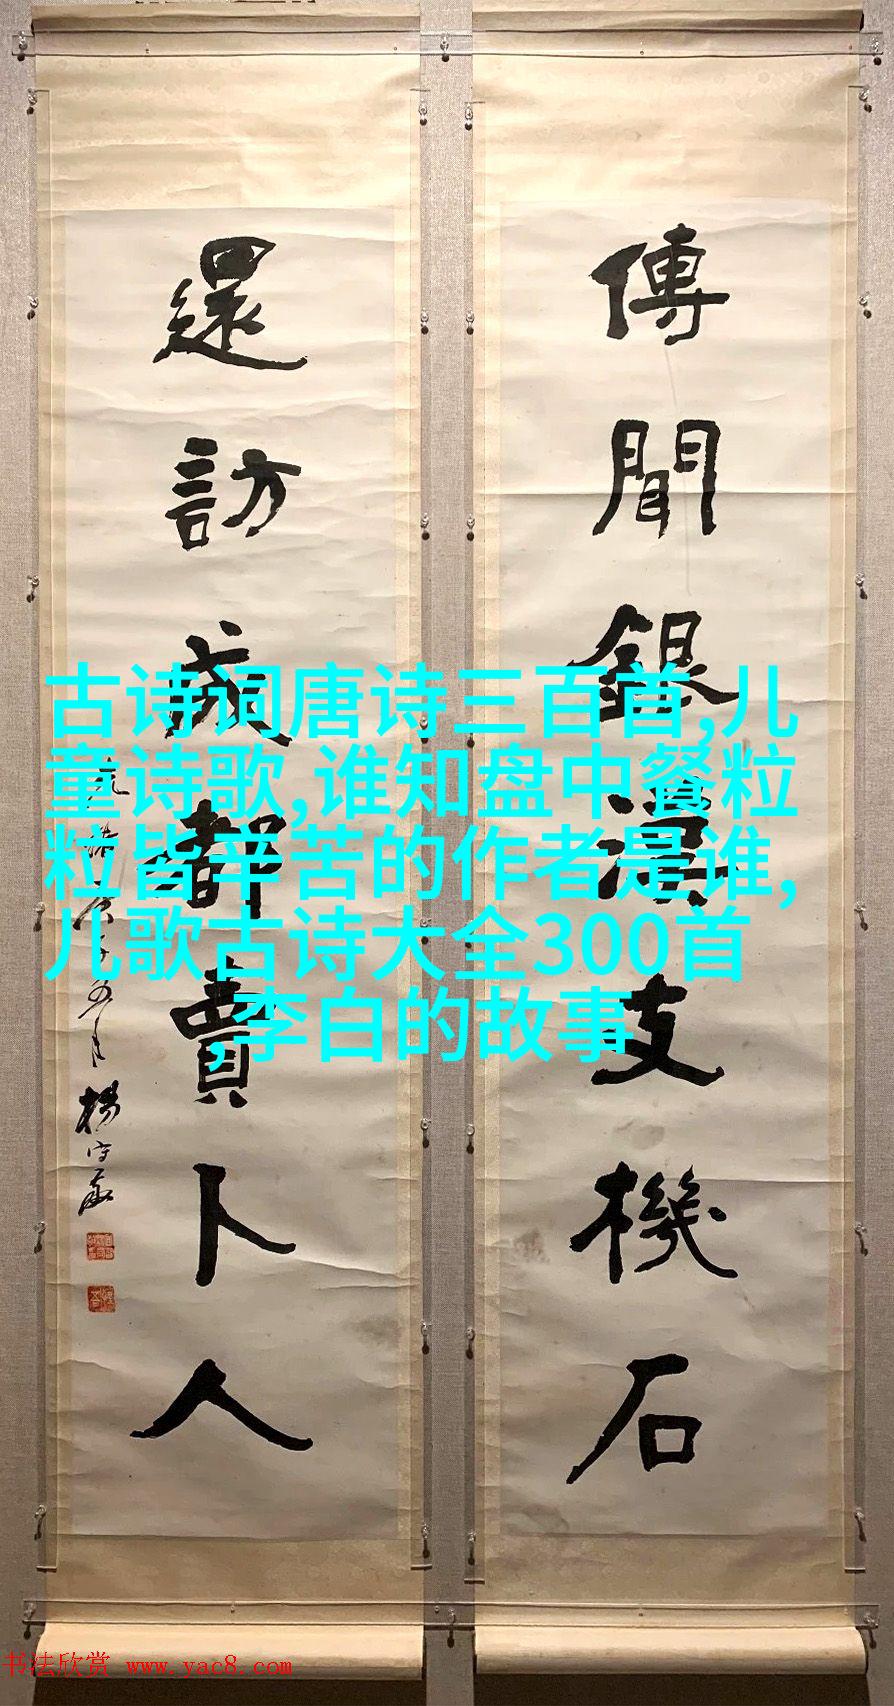 傳聞銀漢支機石
還訪成都賣卜人
楊守敬
古诗词唐诗三百首,儿
童诗歌,谁知盘中餐粒
粒皆辛苦的作者是谁,
儿歌古诗大全300首
,李白的故事
书法欣赏 www.yac8.com